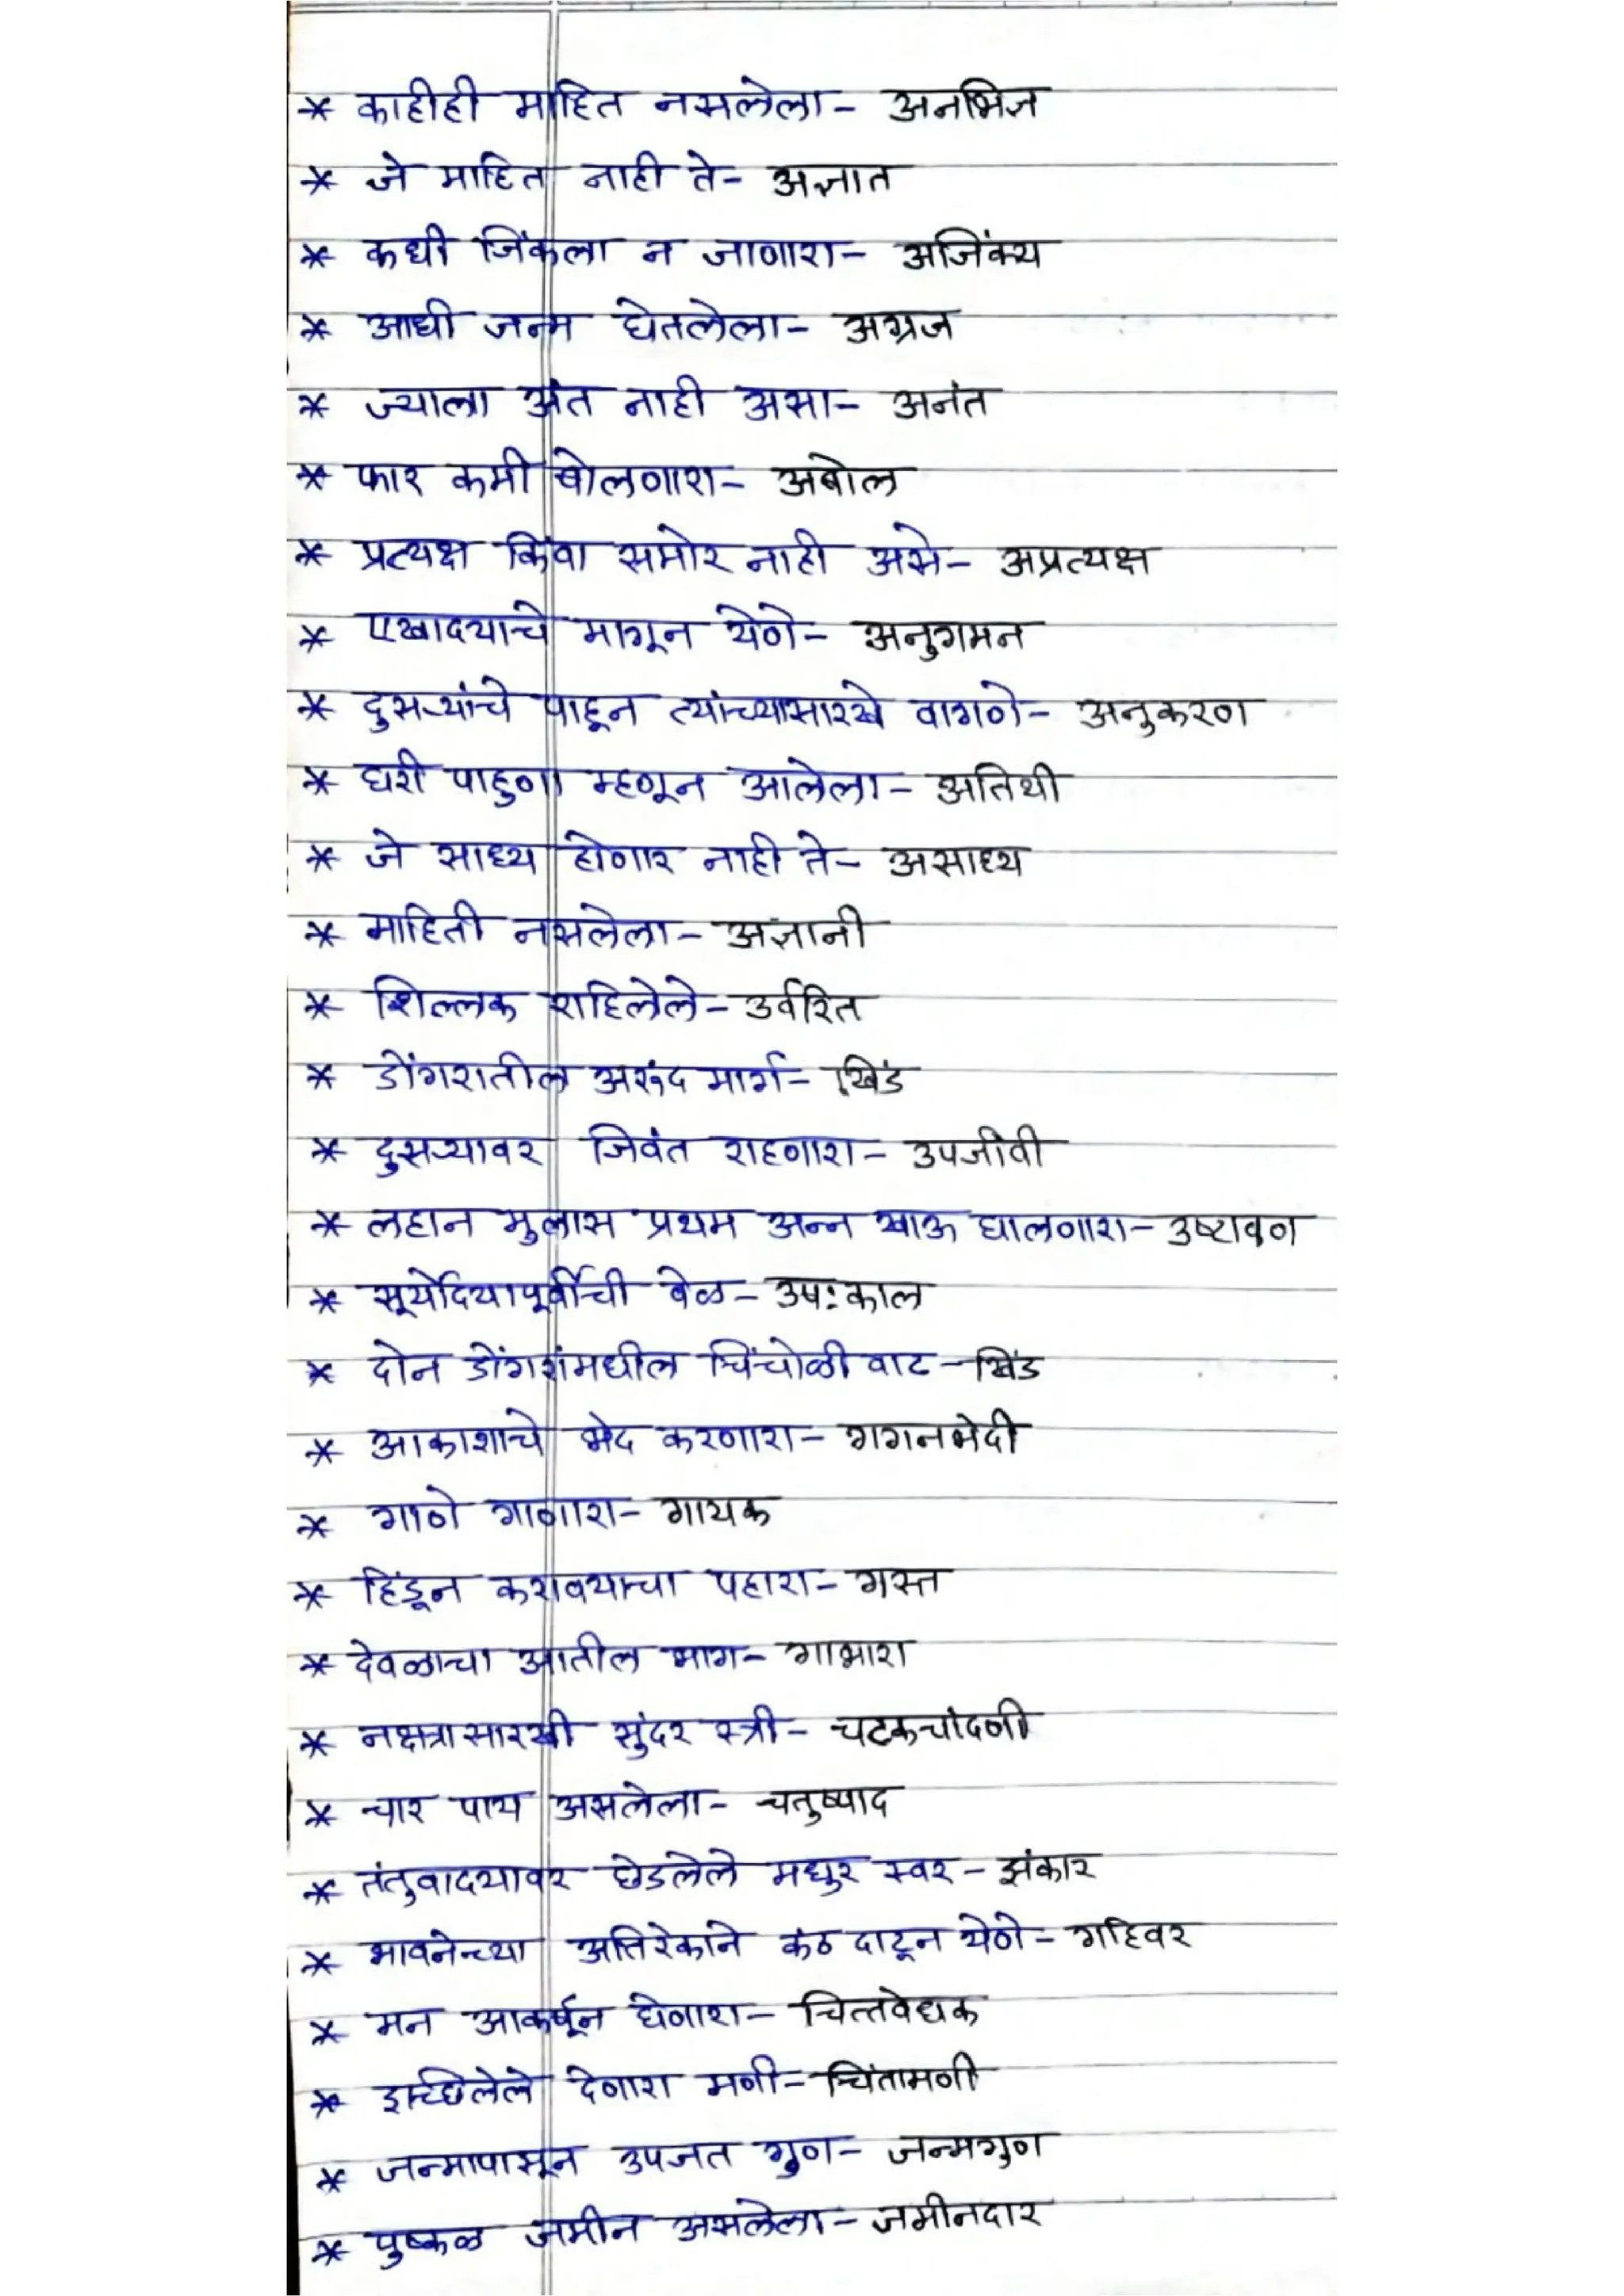 * काहीही माहित नसलेला- अनभिज्ञ
* जे माहित नाही ते- अज्ञात
* कधी जिंकला न जाणारा- अजिंक्य
* आधी जन्म घेतलेला- अग्रज
* ज्याला अंत नाही असा- अनंत
* फार कमी बोलणारा- अबोल
* प्रत्यक्ष किंवा समोर नाही असे- अप्रत्यक्ष
* एखादयाचे मागून येणे- अनुगमन
* दुसऱ्यांचे पाहून त्यांच्यासारखे वागणे- अनुकरण
* घरी पाहुणा म्हणून आलेला- अतिथी
* जे साध्य होणार नाही ते- असाध्य
* माहिती नसलेला- अज्ञानी
* शिल्लक राहिलेले- उर्वरित
* डोंगरातील अरुंद मार्ग- खिंड
* दुसऱ्यावर जिवंत राहणारा- उपजीवी
* लहान मुलास प्रथम अन्न खाऊ घालणारा- उष्टावण
* सूर्योदयापूर्वीची वेळ- उषःकाल
* दोन डोंगरांमधील चिंचोळी वाट- खिंड
* आकाशाचे भेद करणारा- गगनभेदी
* गाणे गाणारा- गायक
* हिंडून करावयाचा पहारा- गस्त
* देवळाचा आतील भाग- गाभारा
* नक्षत्रासारखी सुंदर स्त्री- चटकचांदणी
* चार पाय असलेला- चतुष्पाद
* तंतुवादयावर छेडलेले मधुर स्वर- झंकार
* भावनेच्या अतिरेकाने कंठ दाटून येणे- गहिवर
* मन आकर्षून घेणारा- चित्तवेधक
* इच्छिलेले देणारा मणी- चिंतामणी
* जन्मापासून उपजत गुण- जन्मगुण
* पुष्कळ जमीन असलेला- जमीनदार